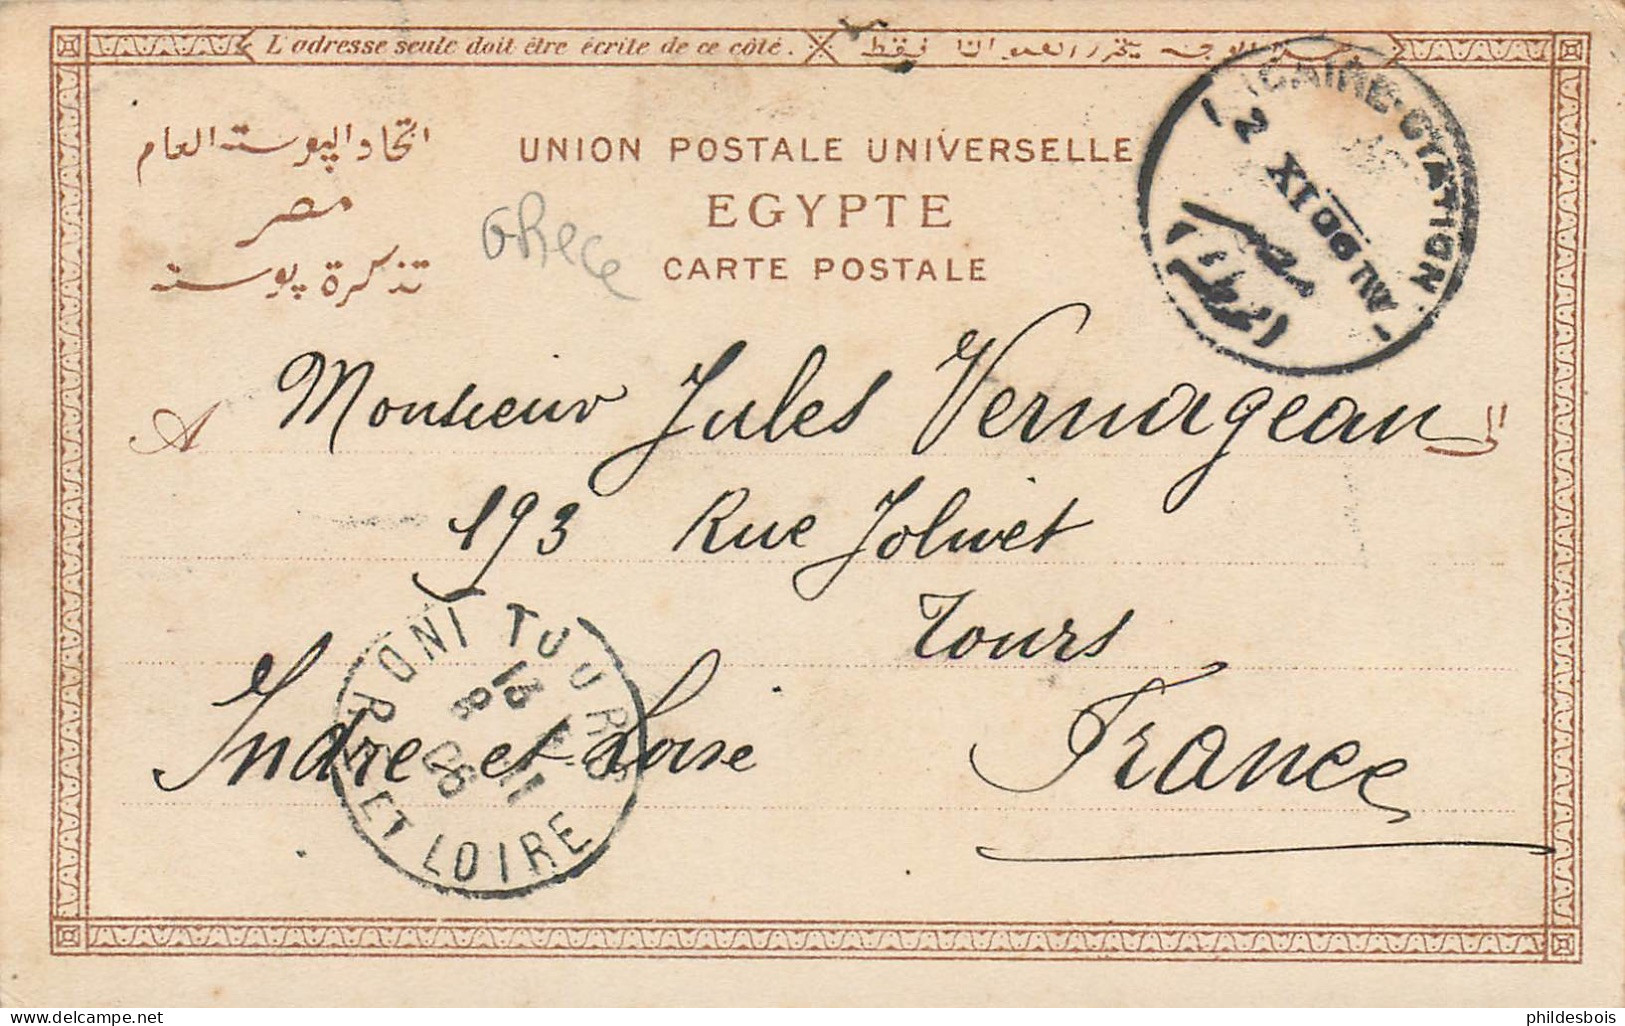 L'adresse seule doit être écrite de ce côté.
اتحاد البوسته العام
مصر
تذكرة بوسته
UNION POSTALE UNIVERSELLE
EGYPTE
CARTE POSTALE
Grece
CAIRE·STATION
2 XI 06
مصر
A Monsieur Jules Vernageau
193 Rue Jolivet
Tours
Indre et Loire
France
TOURS
13
8 11
06
INDRE ET LOIRE
phildesbois